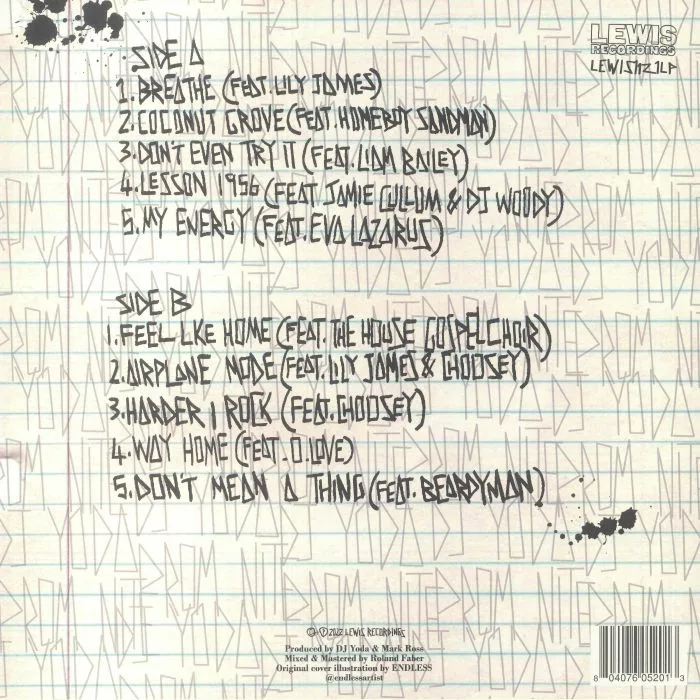 LEWIS
RECORDINGS
LEWIS1121LP
SIDE A
1. BREATHE (FEAT. LILY JAMES)
2. COCONUT GROVE (FEAT. HOMEBOY SANDMAN)
3. DON'T EVEN TRY IT (FEAT. LIAM BAILEY)
4. LESSON 1956 (FEAT. JAMIE CULLUM & DJ WOODY)
5. MY ENERGY (FEAT. EVA LAZARUS)
SIDE B
1. FEEL LKE HOME (FEAT. THE HOUSE GOSPEL CHOIR)
2. AIRPLANE MODE (FEAT. LILY JAMES & CHOOSEY)
3. HARDER I ROCK (FEAT. CHOOSEY)
4. WAY HOME (FEAT. O. LOVE)
5. DON'T MEAN A THING (FEAT. BEARDYMAN)
© ℗ 2022 LEWIS RECORDINGS
Produced by DJ Yoda & Mark Ross
Mixed & Mastered by Roland Faber
Original cover illustration by ENDLESS
@endlessartist
8 04076 05201 3